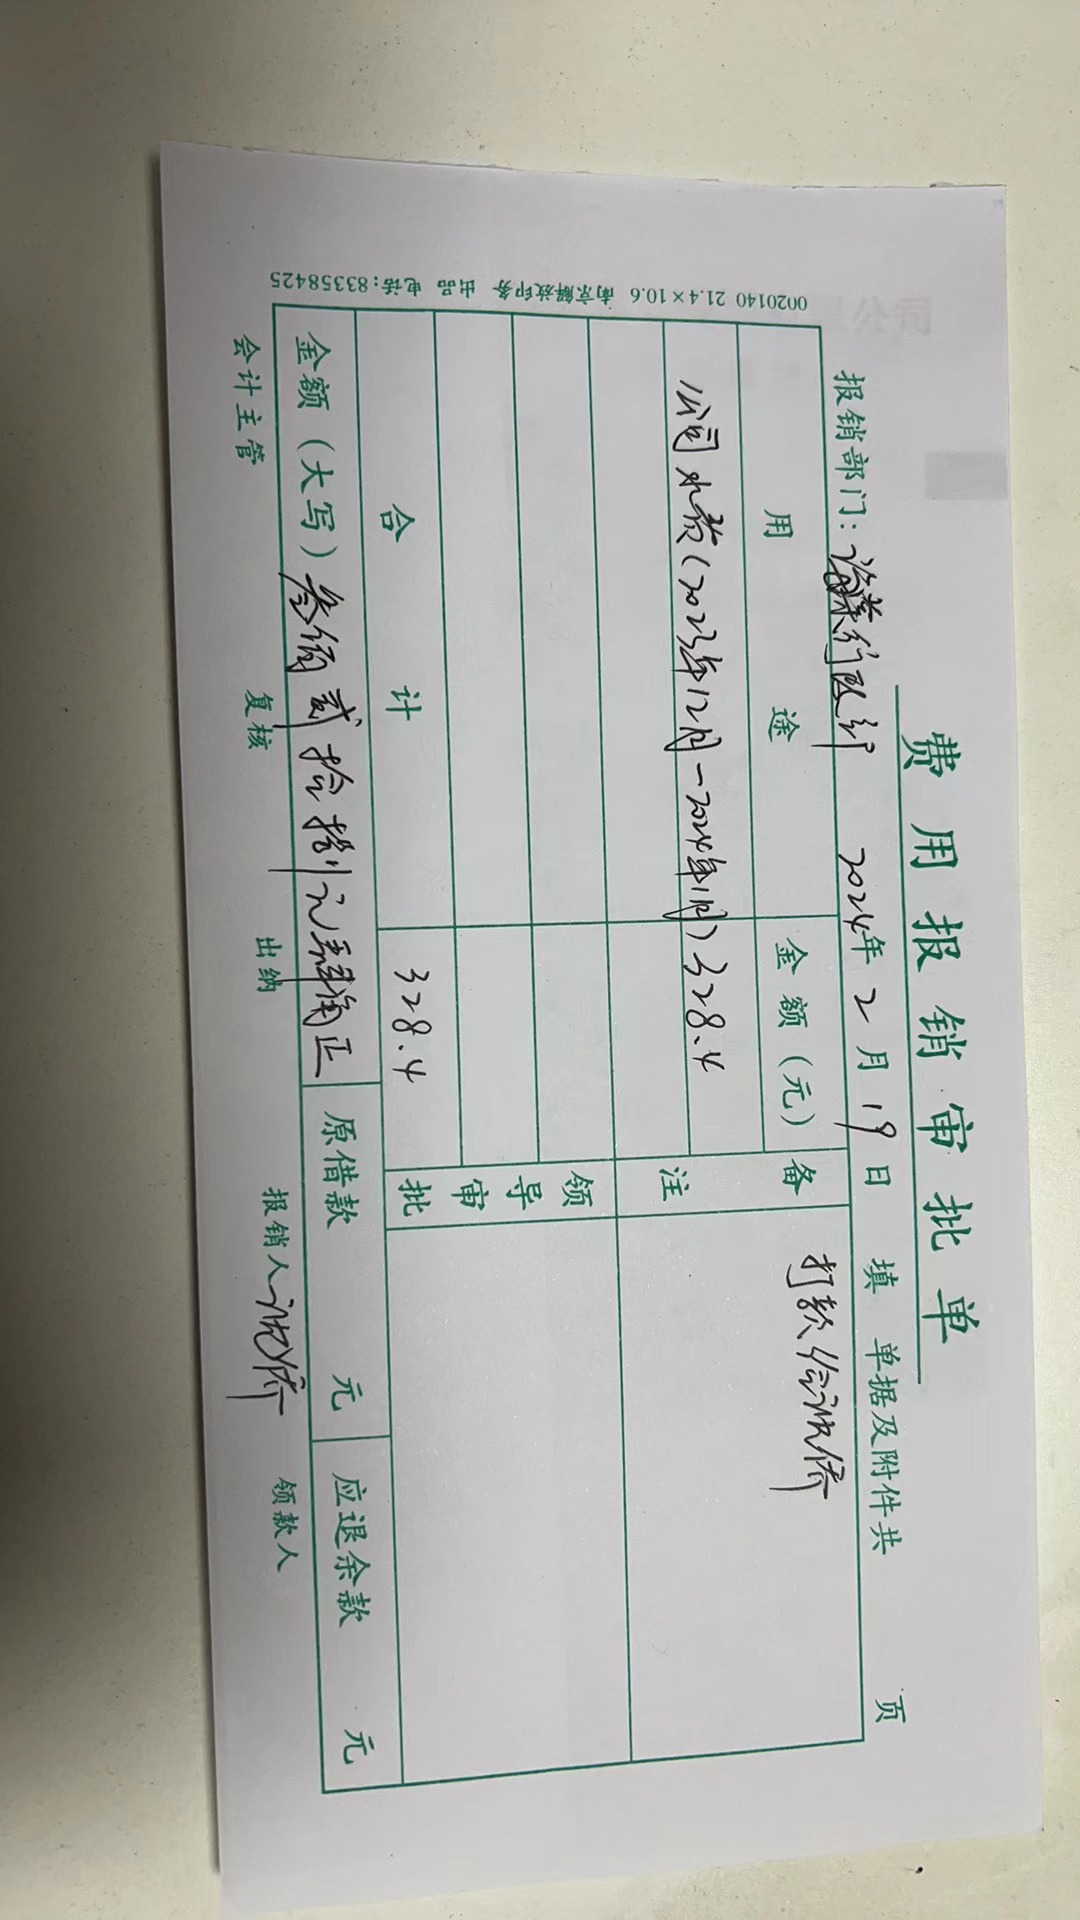 费用报销审批单
报销部门： 2024年2月19日 填 单据及附件共 页
用途 金额（元） 备注 打款给沈侨
公司水费（2023年12月－2024年1月） 328.4
领导审批
合计 328.4
金额（大写）叁佰贰拾捌元肆角正 原借款 元 应退余款 元
会计主管 复核 出纳 报销人 沈侨 领款人
0020140 21.4×10.6 南京解放印务 出品 电话：83358425